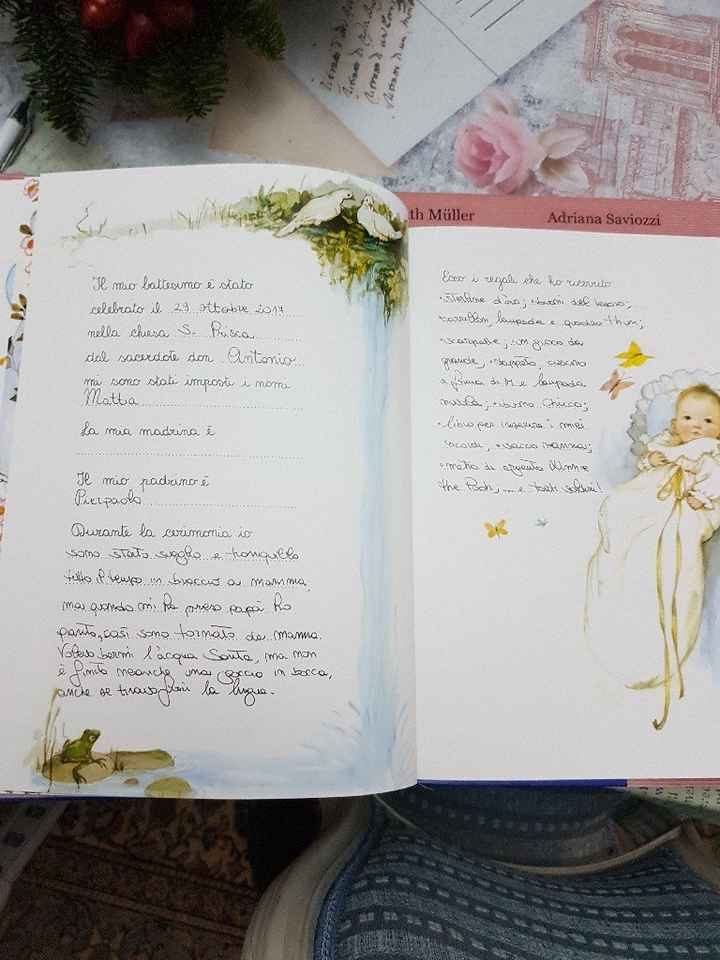 th Müller
Adriana Saviozzi
Il mio battesimo è stato
celebrato il 29 ottobre 2017
nella chiesa S. Prisca
dal sacerdote don Antonio
mi sono stati imposti i nomi
Mattia
La mia madrina è
Il mio padrino è
Pierpaolo
Durante la cerimonia io
sono stato sveglio e tranquillo
tutto il tempo in braccio a mamma,
ma quando mi ha preso papà ho
pianto, così sono tornato da mamma.
Volevo bermi l'acqua Santa, ma non
è finita neanche una goccia in bocca,
anche se tiravo fuori la lingua.
Ecco i regali che ho ricevuto
d'oro; buoni del tesoro;
carillon, lampada e quadro Thun;
scarpette; un gioco da
grande; tappeto, cuscino
a forma di M e lampada
nuvola; buono Chicco;
libro per inserire i miei
ricordi; sacco nanna;
metro di argento Winnie
the Pooh, ... e tanti soldini!